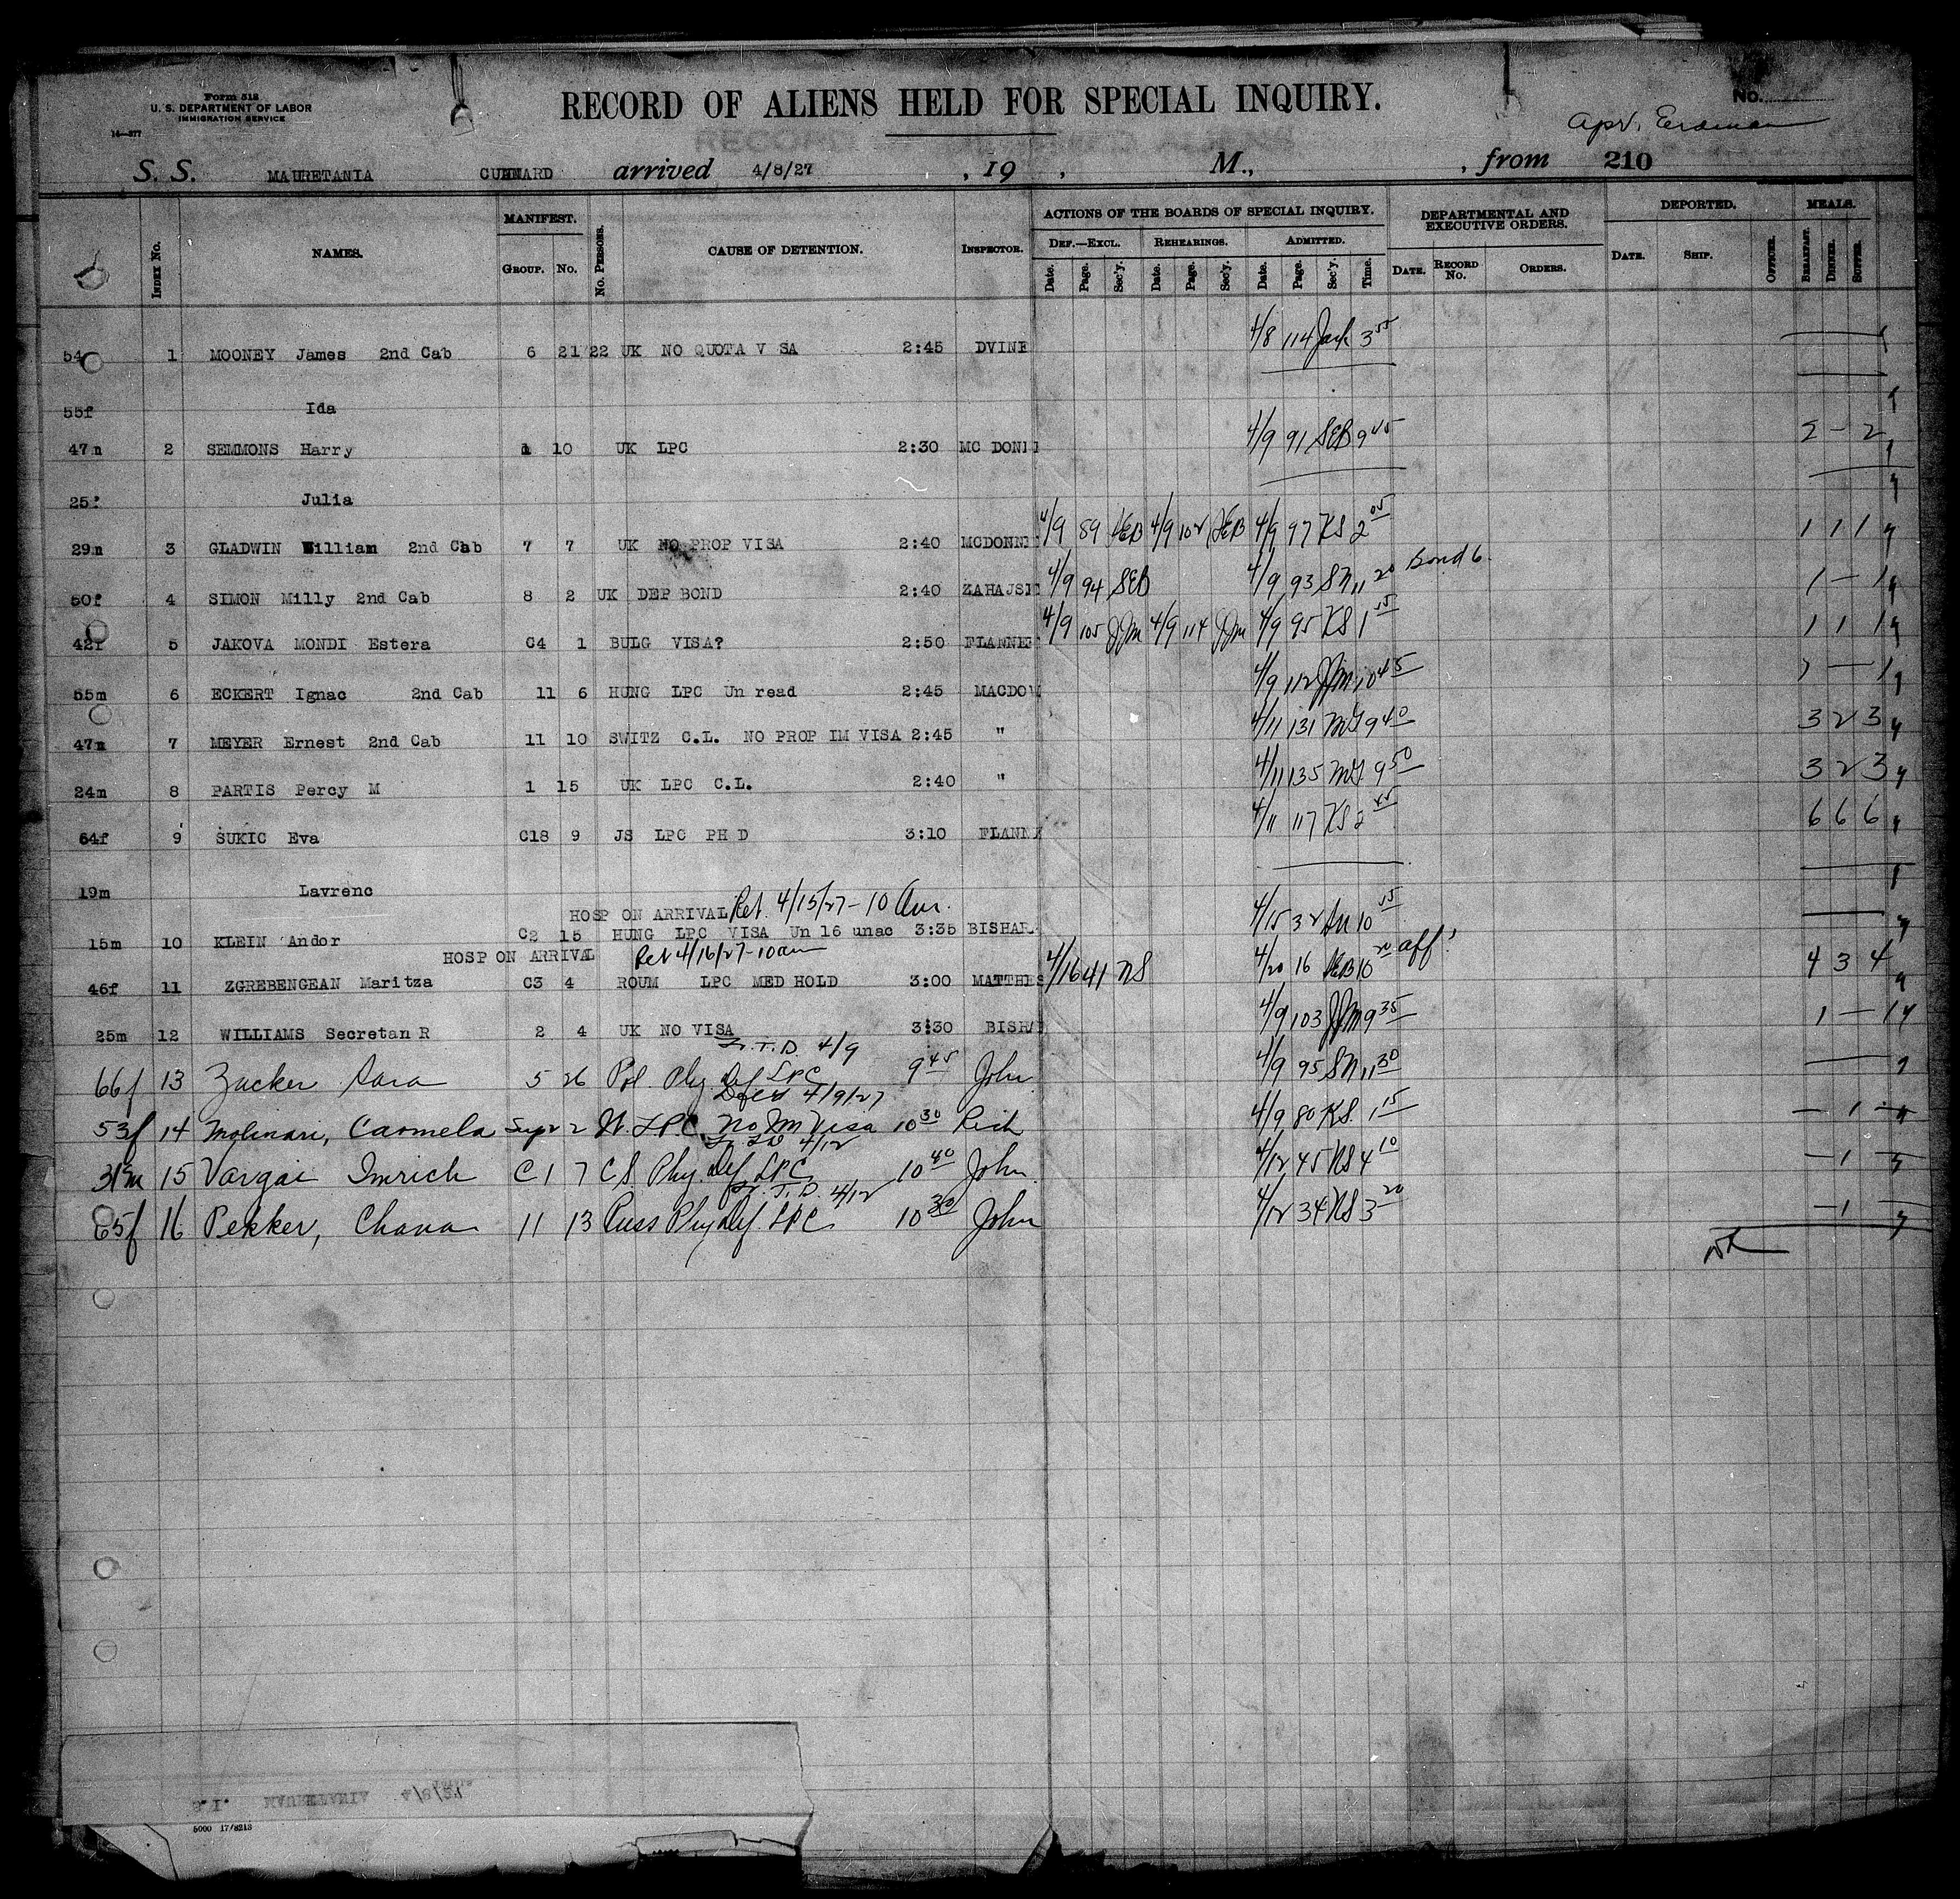 Form 518
U. S. DEPARTMENT OF LABOR
IMMIGRATION SERVICE
14—377
RECORD OF ALIENS HELD FOR SPECIAL INQUIRY.
No.
S. S. MAURETANIA CUNNARD arrived 4/8/27 , 19 , M., , from 210
Index No. NAMES. MANIFEST. Group. No. No. Persons. CAUSE OF DETENTION. Inspector. ACTIONS OF THE BOARDS OF SPECIAL INQUIRY. Def.—Excl. Date. Page. Sec'y. Rehearings. Date. Page. Sec'y. Admitted. Date. Page. Sec'y. Time. DEPARTMENTAL AND EXECUTIVE ORDERS. Date. Record No. Orders. DEPORTED. Date. Ship. Officer. MEALS. Breakfast. Dinner. Supper.
54 1 MOONEY James 2nd Cab 6 21 22 UK NO QUOTA V SA 2:45 DVINE 4/8 114 Jack 3
55f Ida
47m 2 SEMMONS Harry 1 10 UK LPC 2:30 MC DONN 4/9 91 SEB 9 45 2 — 2
25f Julia
29m 3 GLADWIN William 2nd Cab 7 7 UK NO PROP VISA 2:40 MCDONNE 4/9 89 SEB 4/9 102 SEB 4/9 97 KS 2 05 1 1 1
50f 4 SIMON Milly 2nd Cab 8 2 UK DEP BOND 2:40 ZAHAJSI 4/9 94 SEB 4/9 93 SN 11 20 Bond 6. 1 — 1
42f 5 JAKOVA MONDI Estera C4 1 BULG VISA? 2:50 FLANNE 4/9 105 JJM 4/9 114 JJM 4/9 95 KS 1 1 1 1
55m 6 ECKERT Ignac 2nd Cab 11 6 HUNG LPC Un read 2:45 MACDOW 4/9 112 JJM 10 45 1 — 1
47m 7 MEYER Ernest 2nd Cab 11 10 SWITZ C.L. NO PROP IM VISA 2:45 " 4/11 131 MG 9 40 3 2 3
24m 8 PARTIS Percy M 1 15 UK LPC C.L. 2:40 " 4/11 135 MG 9 50 3 2 3
54f 9 SUKIC Eva C18 9 JS LPC PH D 3:10 FLANN 4/11 117 KS 2 6 6 6
19m Lavrenc
HOSP ON ARRIVAL Ret. 4/15/27 - 10 am.
15m 10 KLEIN Andor C2 15 HUNG LPC VISA Un 16 unac 3:35 BISHAR 4/15 32 10
HOSP ON ARRIVAL Ret 4/16/27 - 10 am
46f 11 ZGREBENGEAN Maritza C3 4 ROUM LPC MED HOLD 3:00 MATTHES 4/16 41 NS 4/20 16 SEB 10 aff! 4 3 4
25m 12 WILLIAMS Secretan R 2 4 UK NO VISA 3:30 BISHA 4/9 103 JJM 9 35 1 — 1
T. D. 4/9
66f 13 Zucker Sara 5 26 Pol. Phy. Def LPC 9 45 John 4/9 95 SN 11 30
4/9/27
53f 14 Molinari, Carmela Sup 2 2 It. LPC. No Im Visa 10 30 Rich 4/9 80 KS. 1 15 — 1 —
4/12
31m 15 Vargai Imrich C 1 7 CS Phy. Def LPC 10 40 John 4/12 45 NS 4 10 — 1
T. D. 4/12
65f 16 Pekker, Chana 11 13 Russ Phy Def. LPC 10 30 John 4/12 34 NS 3 20 — 1
S.I. MAURETANIA 4/8/27
5000 17/8213